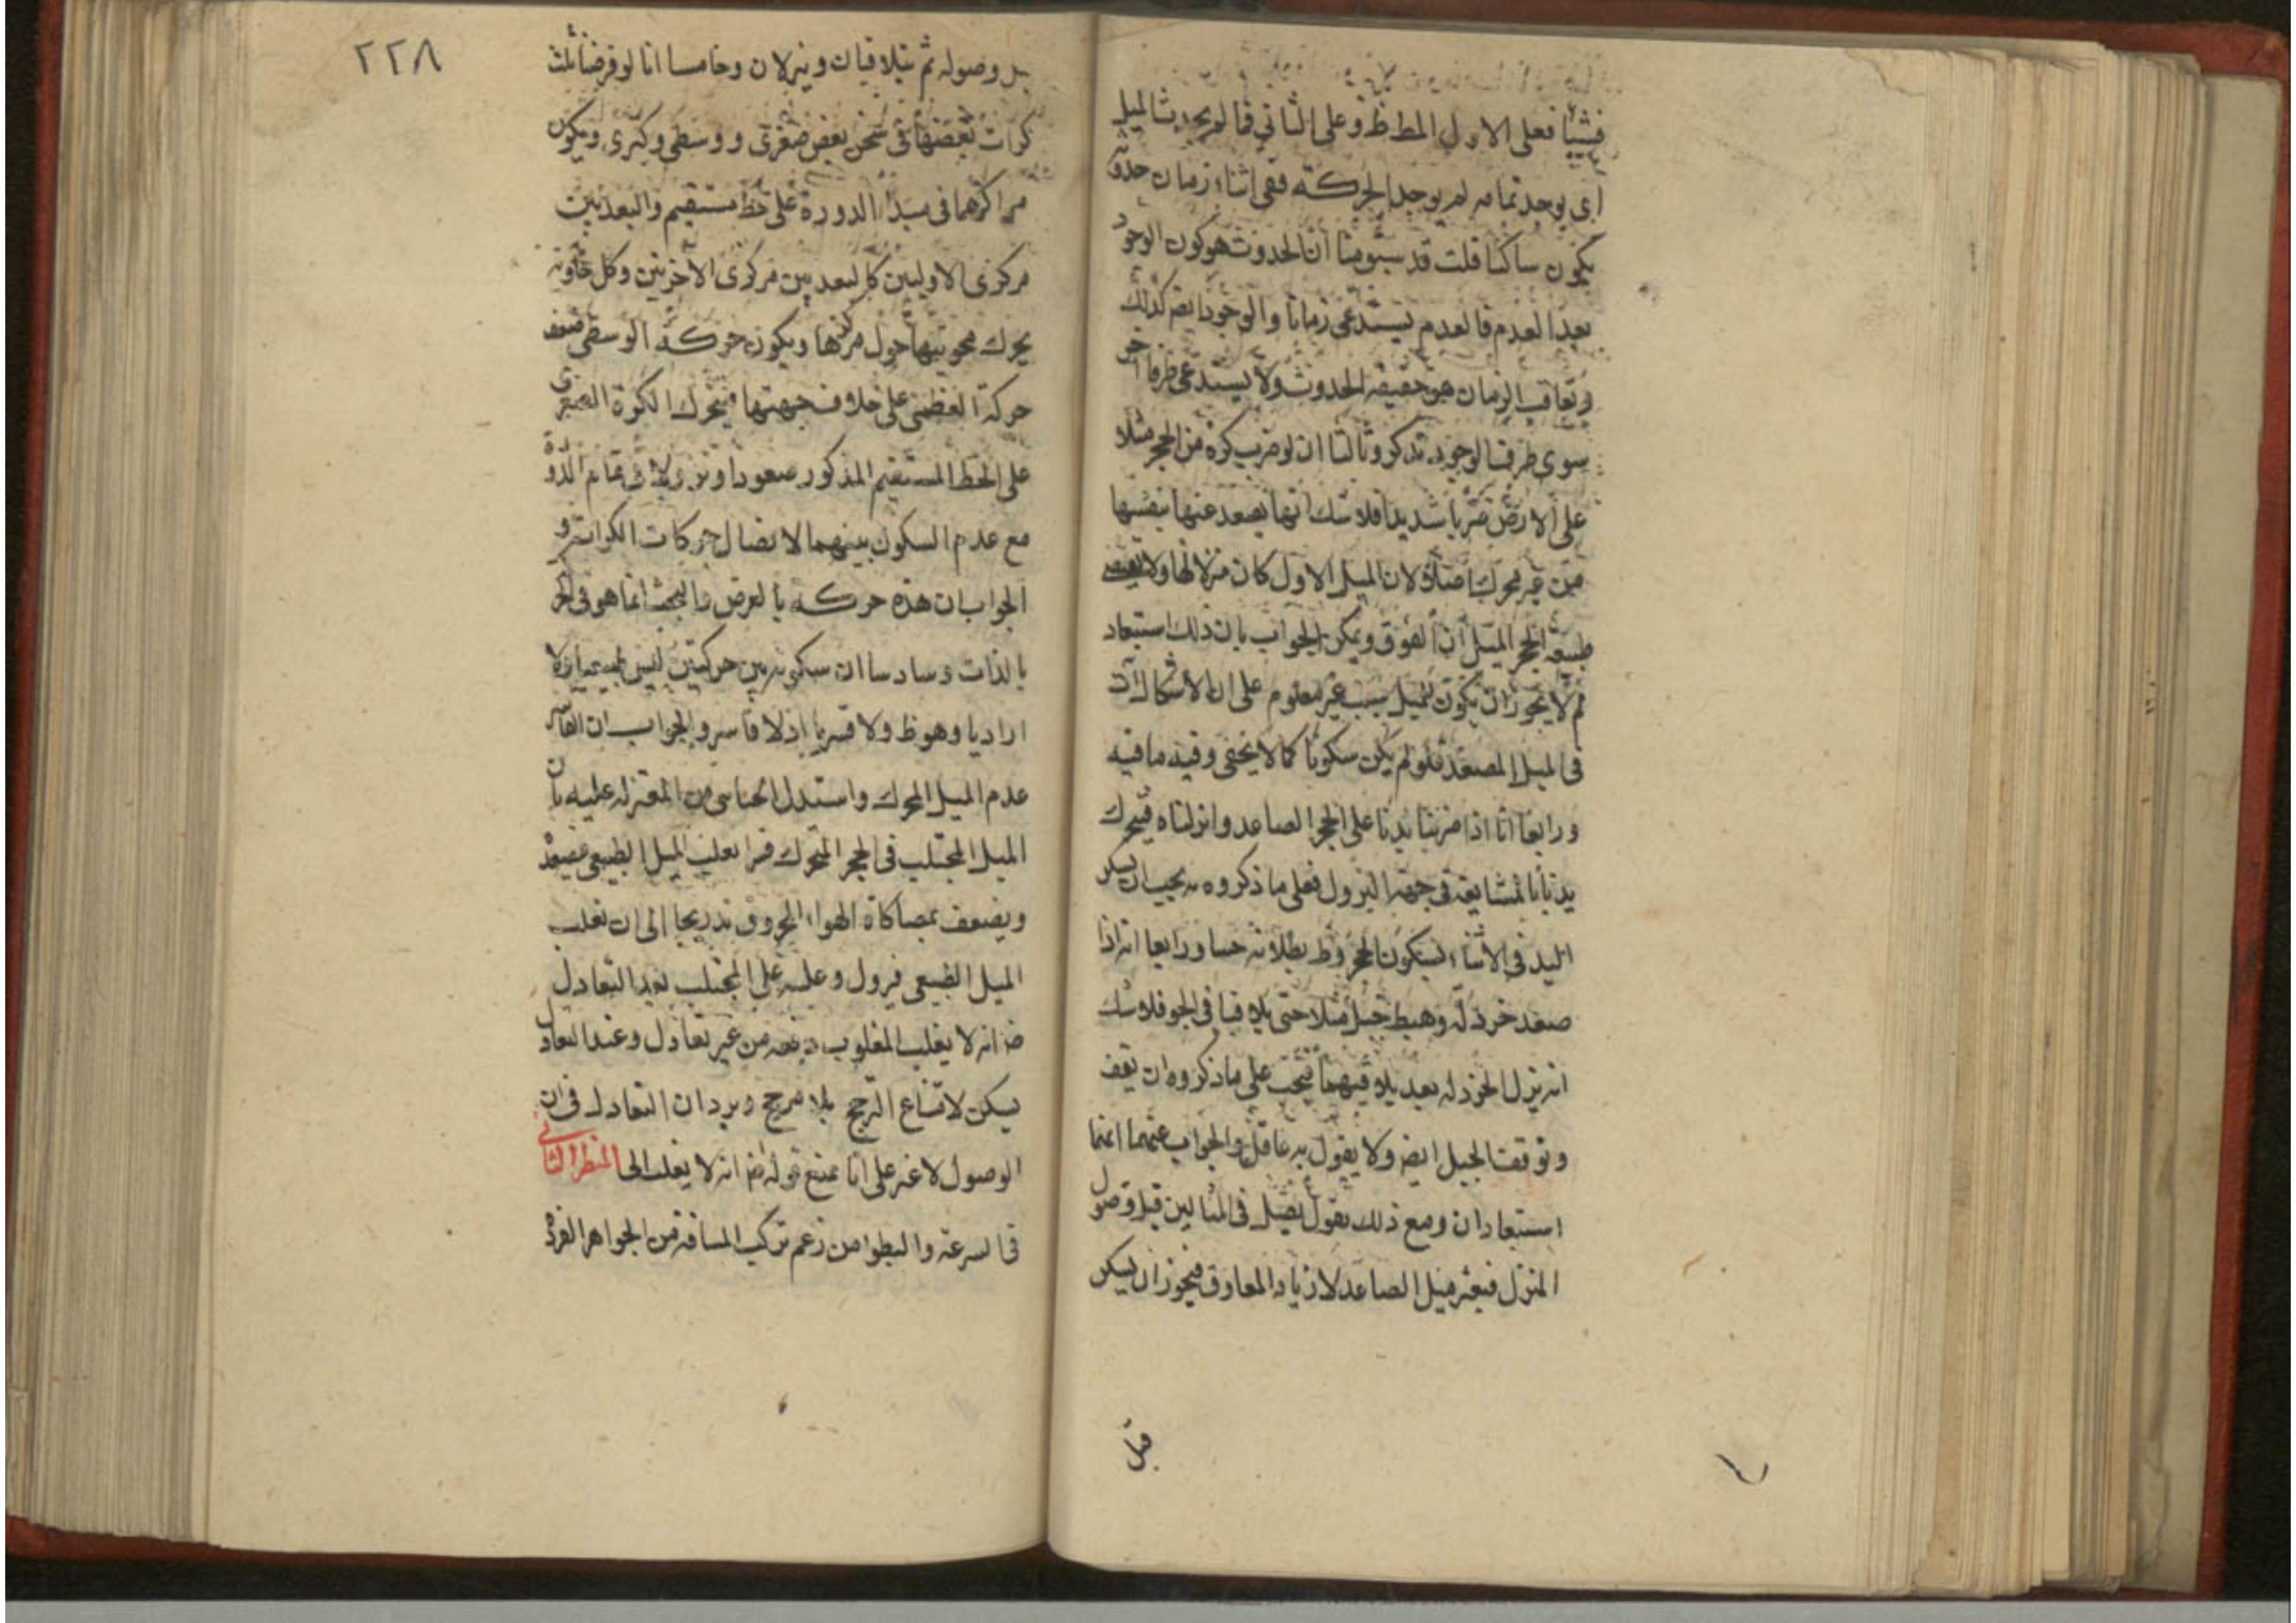 فشيئا فعلى الاول المط ظ وعلى الثاني فما لم يحدث الميل
اى يوجد تمامه لم يوجد الحركة ففى اثناء زمان حدوثه
يكون ساكنا قلت قد سبق منا ان الحدوث هو كون الوجود
بعد العدم فالعدم يستدعى زمانا والوجود ايضه كذلك
وتعاقب الزمان هو حقيقة الحدوث ولا يستدعى طرفا اخر
سوى طرف الوجود تذكر وثالثا ان لو ضرب كرة من الحجر مثلا
على الارض ضربا شديدا فلا شك انها يصعد عنها بنفسها
من غير محرك اصلا لان الميل الاول كان منزلا لها ولا يقتضى
طبيعة الحجر الميل الى الفوق ويمكن الجواب بان ذلك استبعاد
لم لا يجوز ان يكون للميل سبب غير معلوم على ان الاشكال آت
فى الميل المصعد فلو لم يكن سكونا كما لا يخفى وفيه ما فيه
ورابعا انا اذا ضربنا يدنا على الحجر الصاعد وانزلناه فيحرك
يدنا بالمشايعة فى جهة النزول فعلى ما ذكروه يجب ان يسكن
اليد فى الاثناء لسكون الحجر وظ بطلانه حسا ورابعا انه اذا
صعد خردلة وهبط جبل مثلا حتى يلاقيا فى الجو فلا شك
انه ينزل الخردلة بعد تلاقيهما فيجب على ما ذكروه ان يقف
وتوقف الجبل ايضه ولا يقول به عاقل والجواب عنهما انهما
استبعادان ومع ذلك نقول يصل فى المثالين قبل وصول
المنزل فيفتر ميل الصاعد لازدياد المعاوق فيجوز ان يسكن
قبل
٢٢٨
قبل وصوله ثم يتلاقيان وينزلان وخامسا انا لو فرضنا ثلث
كرات بعضها فى ثخن بعض صغرى ووسطى وكبرى ويكون
مراكزها فى مبدا الدورة على خط مستقيم والبعد بين
مركزى الاوليين كالبعد بين مركزى الاخريين وكل حاوية
يحرك محويتها حول مركزها ويكون حركة الوسطى ضعف
حركة العظمى على خلاف جهتها فيتحرك الكرة الصغرى
على الخط المستقيم المذكور صعودا ونزولا فى تمام الدورة
مع عدم السكون بينهما لاتصال حركات الكرات و
الجواب ان هذه حركة بالعرض والبحث انما هو فى الحركة
بالذات وسادسا ان سكونه بين حركتين ليس طبيعيا ولا
اراديا وهو ظ ولا قسريا اذ لا قاسر والجواب ان القاسر
عدم الميل المحرك واستدل الجبائى من المعتزلة عليه بان
الميل المجتلب فى الحجر المتحرك قسرا يغلب الميل الطبيعى فيصعد
ويضعف بمصاكاة الهواء المخروق تدريجا الى ان تغلب
الميل الطبيعى فينزل وغلبته على المجتلب بعد التعادل
ضه انه لا يغلب المغلوب دفعة من غير تعادل وعند التعادل
يسكن لامتناع الترجح بلا مرجح ويرد ان التعادل فى آن
الوصول لا غير على انا نمنع قوله ضه انه لا يغلب الخ المنظر الثانى
فى السرعة والبطوا من زعم تركب المسافة من الجواهر الفردة